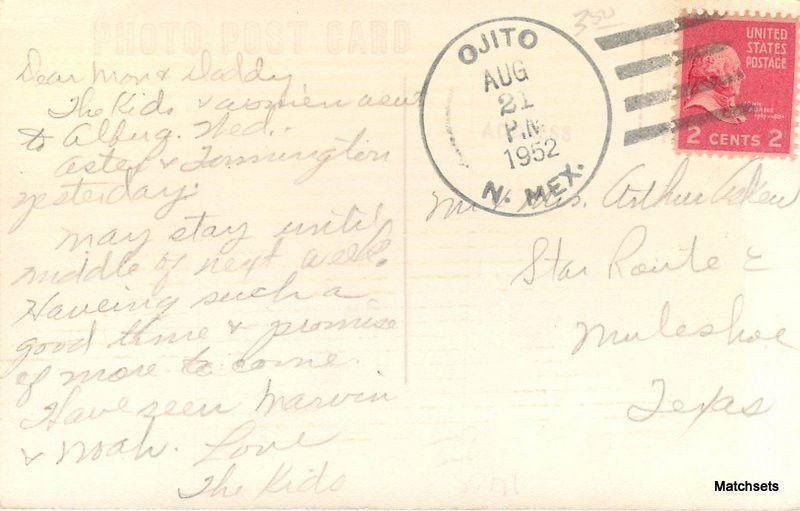 PHOTO POST CARD
Dear Mom & Daddy
The Kids & women went
to Albuq. Wed.
Aztec & Farmington
yesterday.
May stay until
middle of next week.
Haveing such a
good time & promise
of more to come.
Have seen Marvin
& Noah. Love
The Kids
350
OJITO
AUG
21
P.M.
1952
N. MEX.
ADDRESS
UNITED
STATES
POSTAGE
JOHN
ADAMS
2 CENTS 2
Mr & Mrs. Arthur Askew
Star Route 2
Muleshoe
Texas
Matchsets